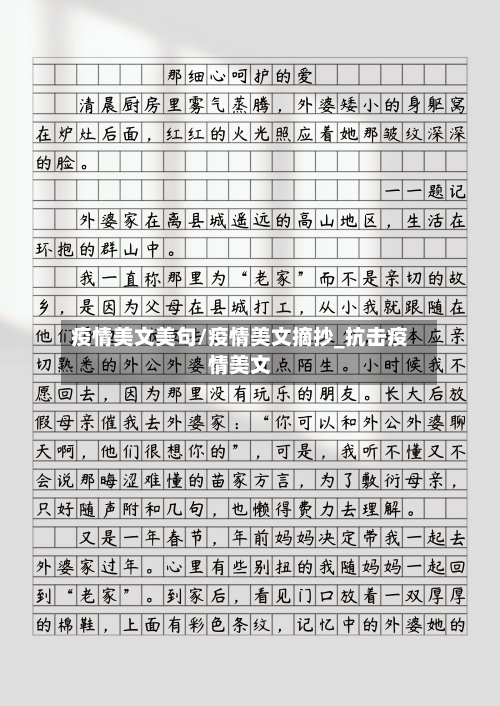 那细心呵护的爱
清晨厨房里雾气蒸腾，外婆矮小的身躯窝
在炉灶后面，红红的火光照应着她那皱纹深深
的脸。
一一题记
外婆家在离县城遥远的高山地区，生活在
环抱的群山中。
我一直称那里为“老家”而不是亲切的故
乡，是因为父母在县城打工，从小我就跟随在
他们 本应亲
疫情美文美句/疫情美文摘抄_抗击疫
情美文
切熟悉的外公外婆 点陌生。小时候我不
愿回去，因为那里没有玩乐的朋友。长大后放
假母亲催我去外婆家：“你可以和外公外婆聊
天啊，他们很想你的”，可是，我听不懂又不
会说那晦涩难懂的苗家方言，为了敷衍母亲，
只好随声附和几句，也懒得费力去理解。
又是一年春节，年前妈妈决定带我一起去
外婆家过年。心里有些别扭的我随妈妈一起回
到“老家”。到家后，看见门口放着一双厚厚
的棉鞋，上面有彩色条纹，记忆中的外婆她的